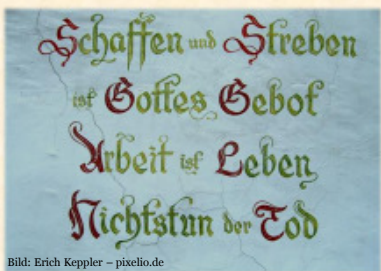 Schaffen und Streben
ist Gottes Gebot
Arbeit ist Leben
Nichtstun der Tod
Bild: Erich Keppler – pixelio.de